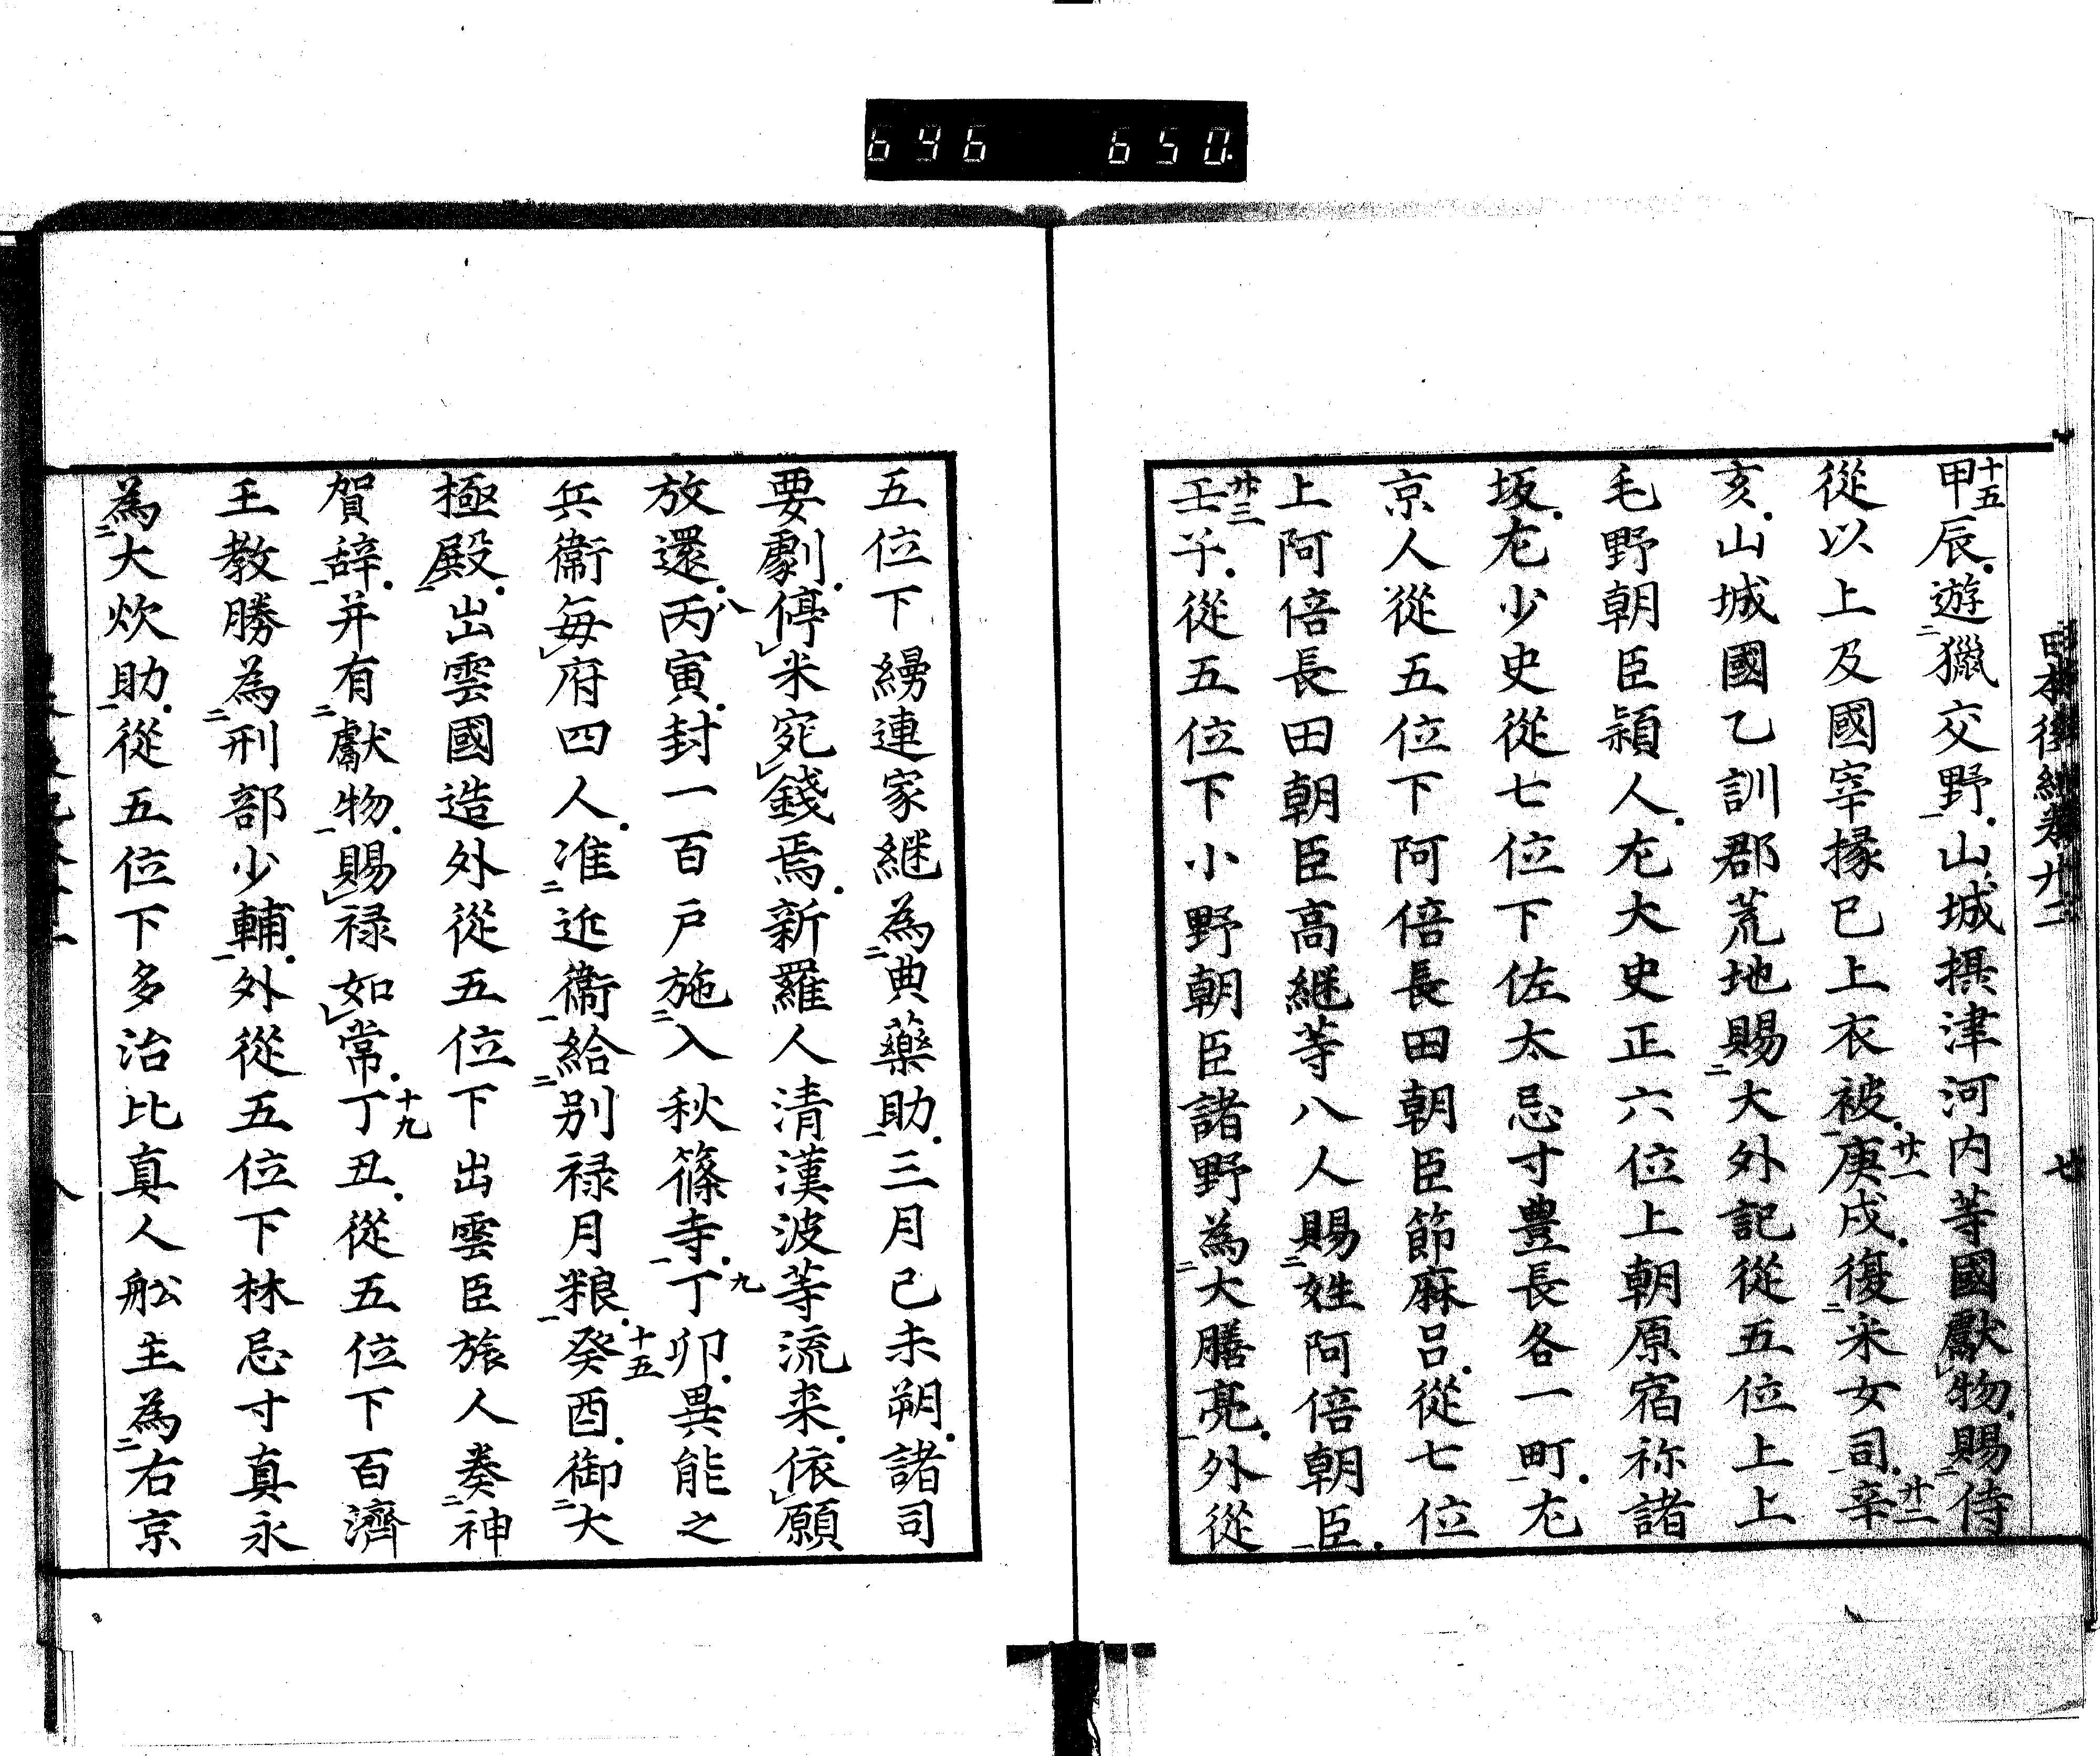 646 650
日本後紀卷廿二 七
甲辰遊獵交野山城摂津河内等國獻物賜侍
十五
從以上及國宰掾已上衣被庚戌復采女司辛
廿一 廿二
亥山城國乙訓郡荒地賜大外記從五位上上
毛野朝臣頴人尢大史正六位上朝原宿祢諸
坂尢少史從七位下佐太忌寸豊長各一町尢
京人從五位下阿倍長田朝臣節麻呂從七位
上阿倍長田朝臣高継等八人賜姓阿倍朝臣
壬子從五位下小野朝臣諸野為大膳亮外從
廿三
五位下縵連家継為典藥助三月己未朔諸司
要劇停米宛錢焉新羅人清漢波等流来依願
放還丙寅封一百戸施入秋篠寺丁卯異能之
八 九
兵衞毎府四人准近衞給別禄月粮癸酉御大
十五
極殿出雲國造外從五位下出雲臣旅人奏神
賀辞并有獻物賜禄如常丁丑從五位下百濟
十九
王教勝為刑部少輔外從五位下林忌寸真永
為大炊助從五位下多治比真人舩主為右京
八